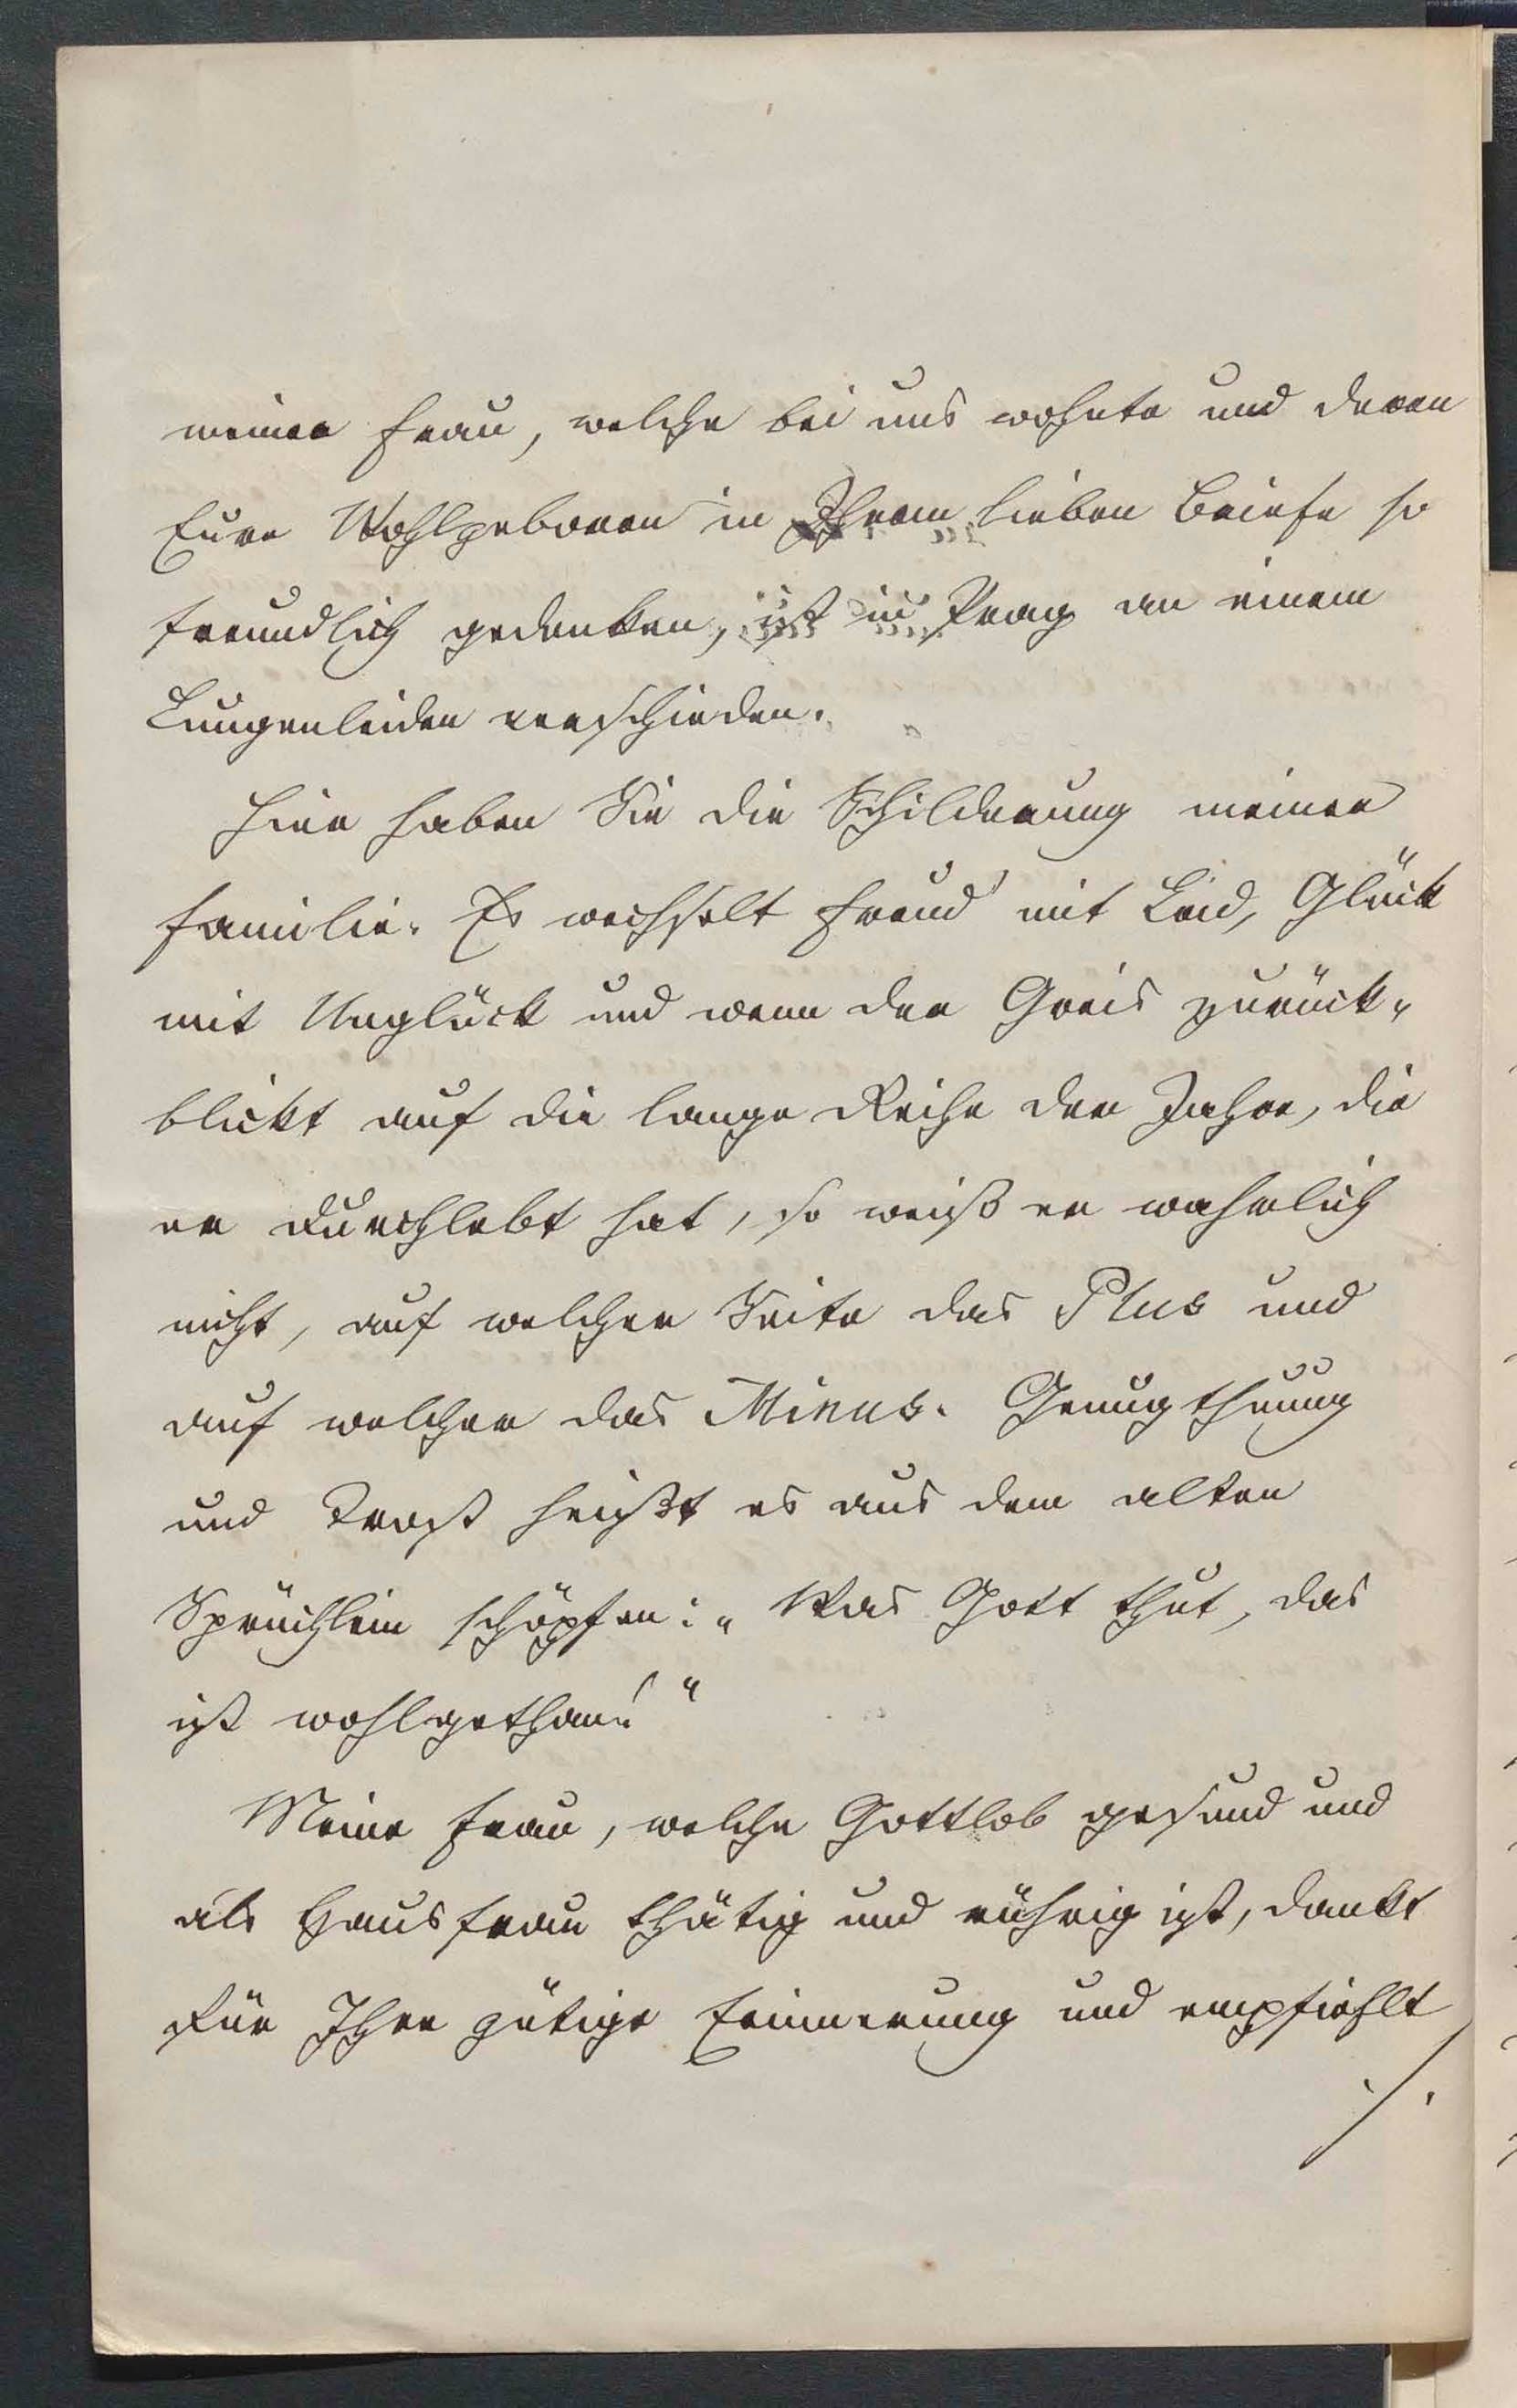 meiner Frau, welche bei uns wohnte und deren
Euer Wohlgeboren in Ihrem lieben Briefe so
freundlich gedenken, ist in Prag an einem
Lungenleiden verschieden.
Hier haben Sie die Schilderung meiner
Familie. Es wechselt Freud' mit Leid, Glück
mit Unglück und wenn der Greis zurück-
blickt auf die lange Reihe der Jahre, die
er durchlebt hat, so weiß er wahrlich
nicht, auf welcher Seite das Plus und
auf welcher das Minus. Genugthuung
und Trost heißt es aus dem alten
Sprüchlein schöpfen: „Was Gott thut, das
ist wohlgethan!"
Meine Frau, welche Gottlob gesund und
als Hausfrau thätig und rührig ist, dankt
für Ihre gütige Erinnerung und empfiehlt
./.